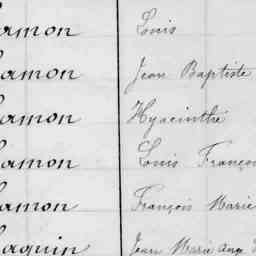 amon Louis
amon Jean Baptiste
amon Hyacinthe
amon Louis Franço
amon François Marie
aquin Jean Marie Ange